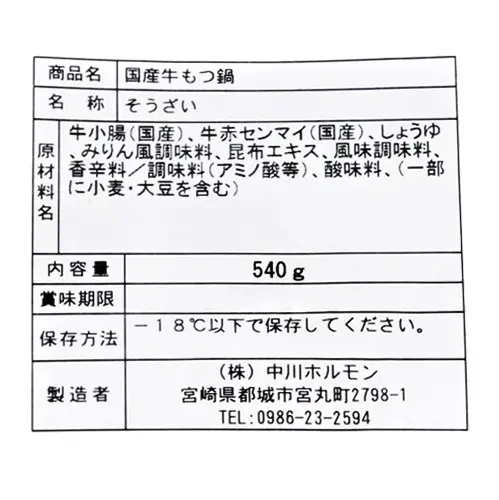 商品名 国産牛もつ鍋
名 称 そうざい
原材料名 牛小腸(国産)、牛赤センマイ(国産)、しょうゆ
、みりん風調味料、昆布エキス、風味調味料、
香辛料/調味料(アミノ酸等)、酸味料、(一部
に小麦・大豆を含む)
内容量 540g
賞味期限
保存方法 -18℃以下で保存してください。
製造者 (株)中川ホルモン
宮崎県都城市宮丸町2798-1
TEL:0986-23-2594